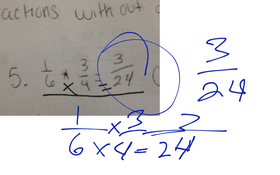 actions with out
5. 1/6 × 3/4 = 3/24
3/24
1/6 × 3/4 = 3/24